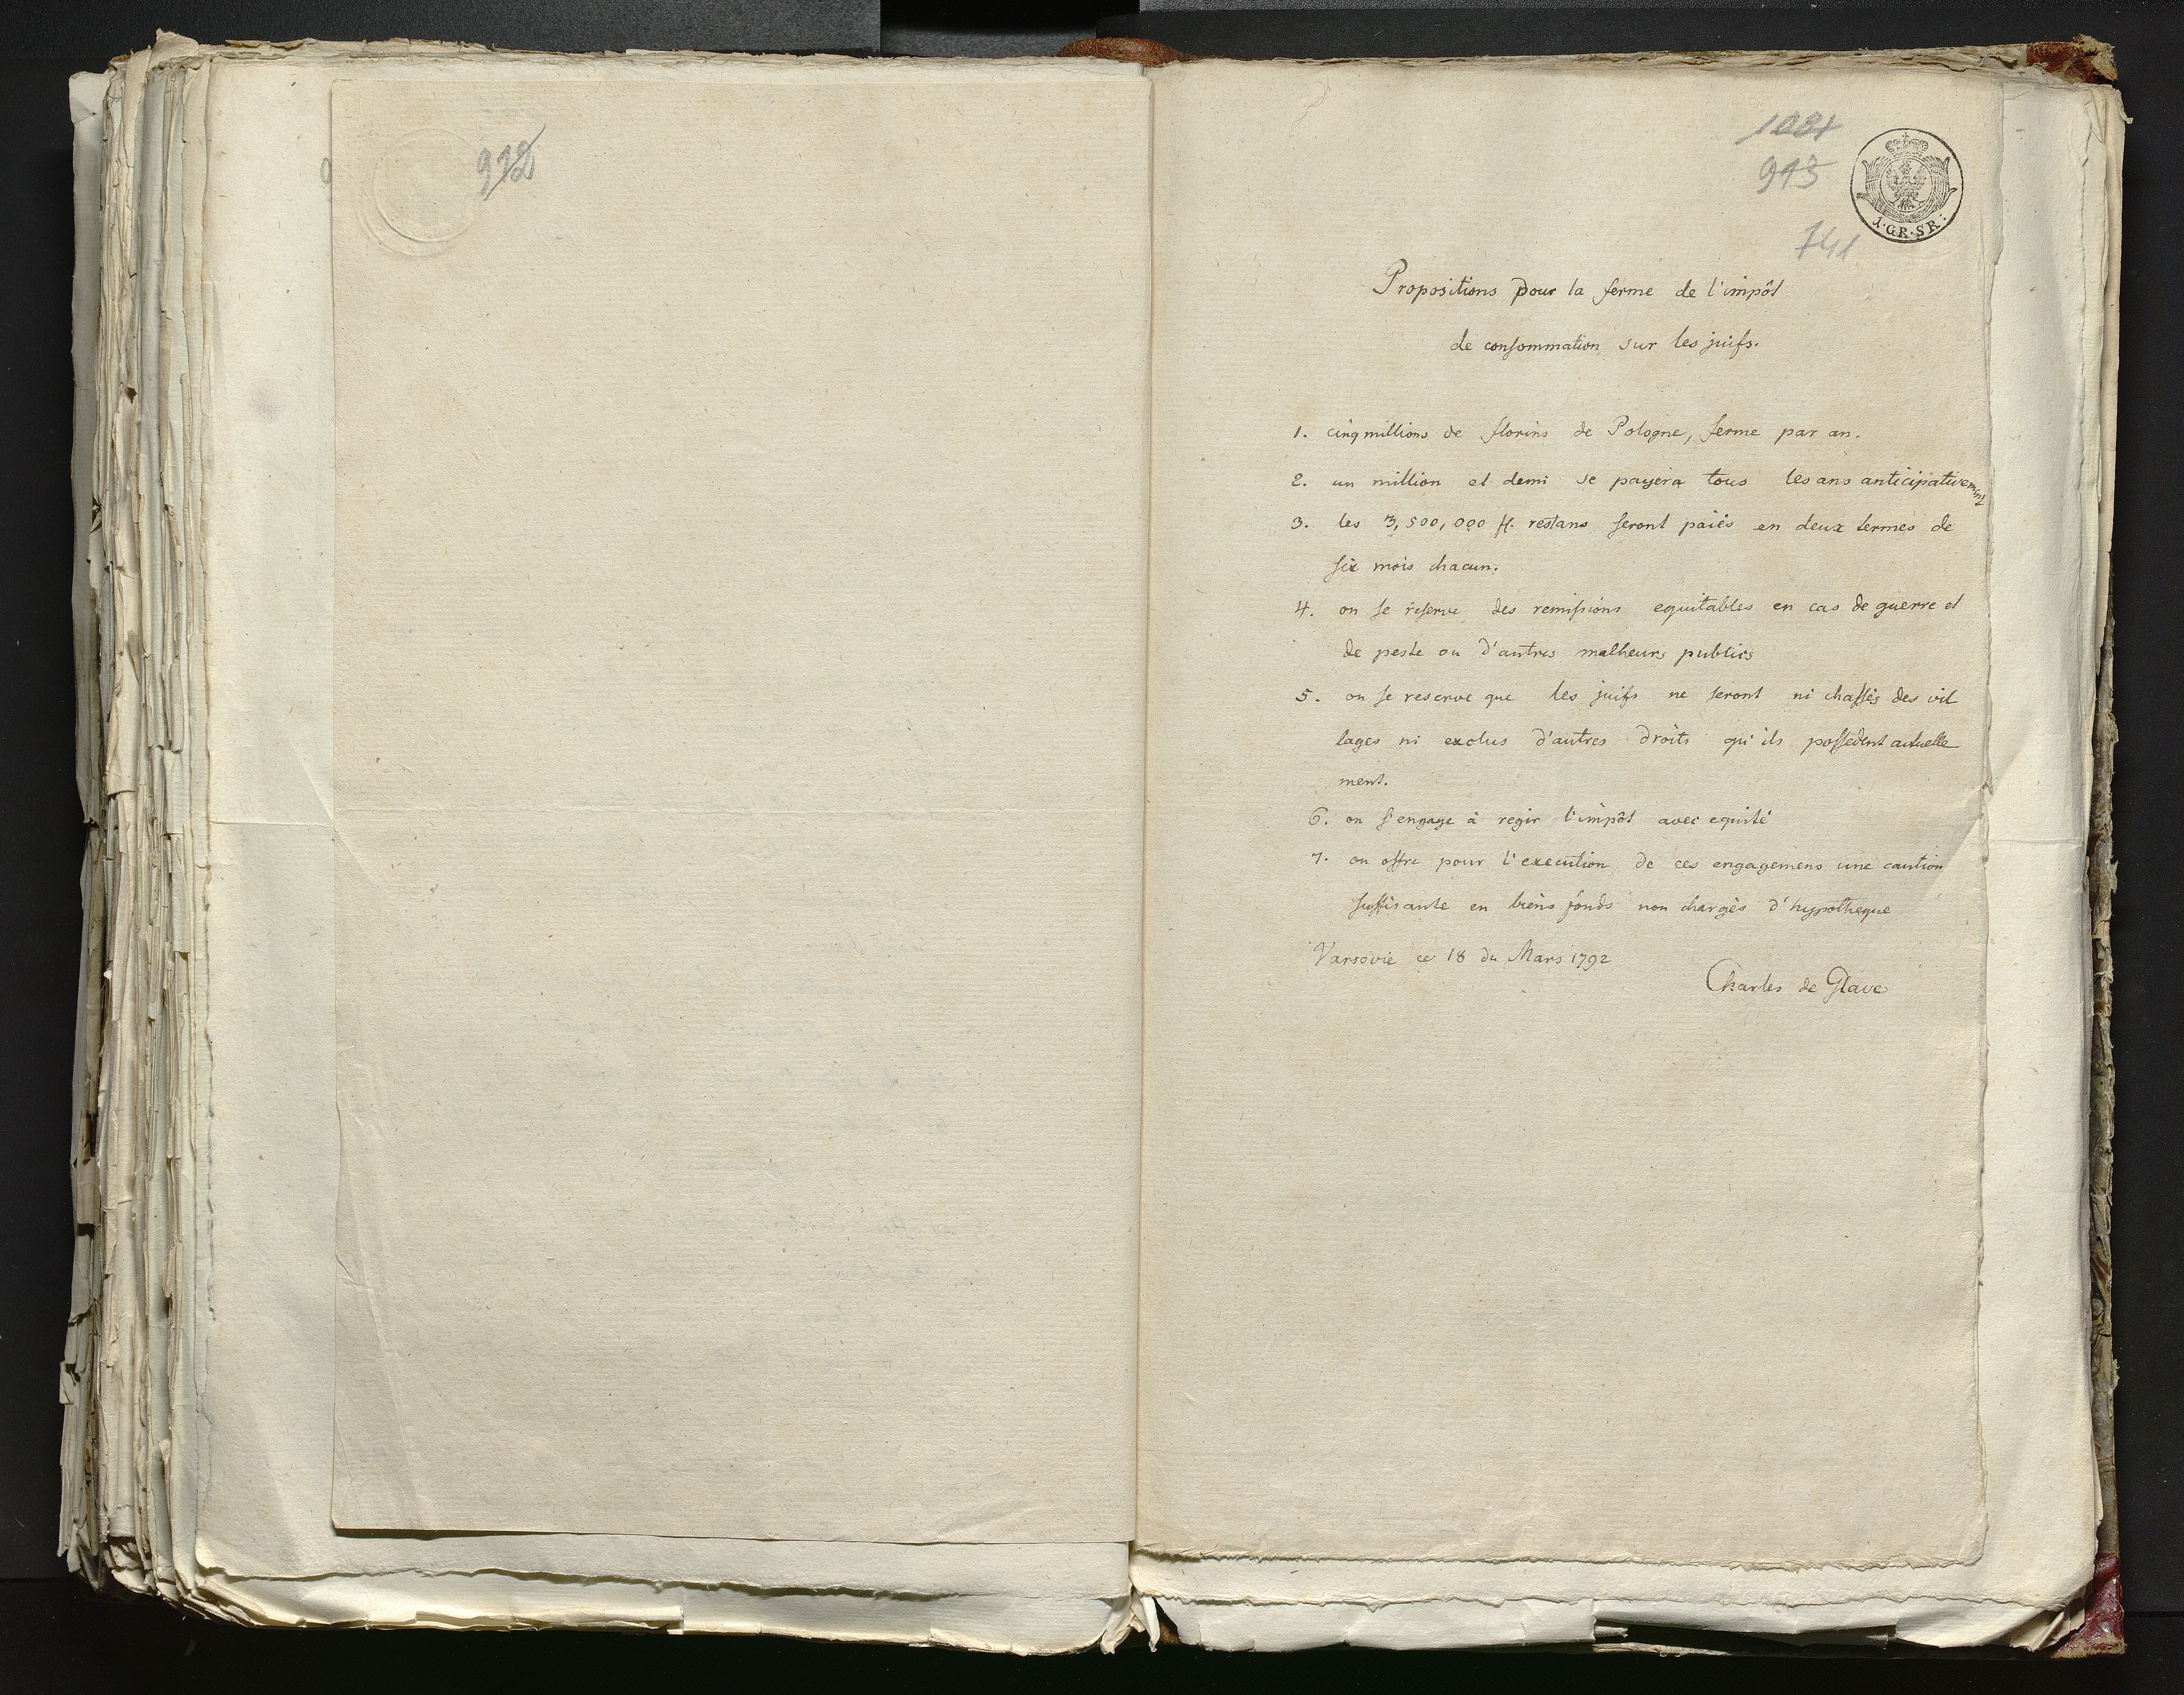 912
1081
913
741
1·GR·SR:
Propositions pour la ferme de l'impôt
de consommation sur les juifs.
1. cinq millions de florins de Pologne, ferme par an.
2. un million et demi se payera tous les ans anticipativement
3. les 3,500,000 fl. restans seront paiés en deux termes de
six mois chacun.
4. on se reserve des remissions equitables en cas de guerre et
de peste ou d'autres malheurs publics
5. on se reserve que les juifs ne seront ni chassés des vil
lages ni exclus d'autres droits qu'ils possedent actuelle
ment.
6. on s'engage à regir l'impôt avec equité
7. on offre pour l'execution de ces engagemens une caution
suffisante en biens fonds non chargés d'hypotheque
Varsovie ce 18 du Mars 1792
Charles de Glave